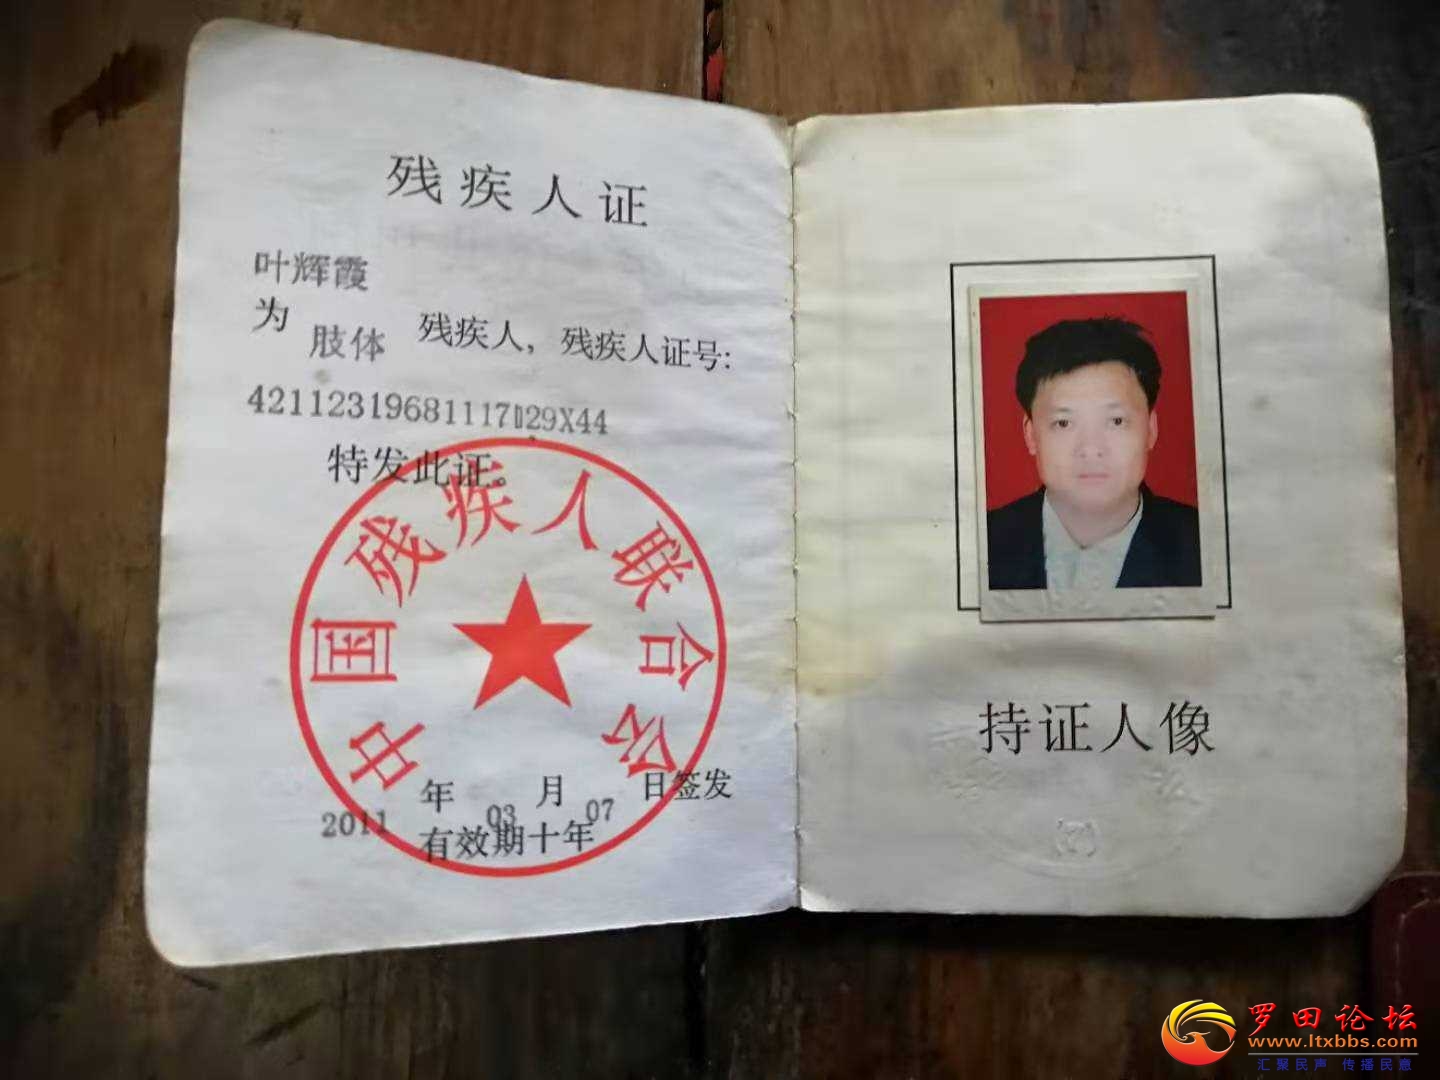 残疾人证
叶辉霞
为 肢体 残疾人，残疾人证号:
42112319681117029X44
特发此证。
中国残疾人联合会
2011 年 03 月 07 日签发
有效期十年
持证人像
罗田论坛
www.ltxbbs.com
汇聚民声 传播民意